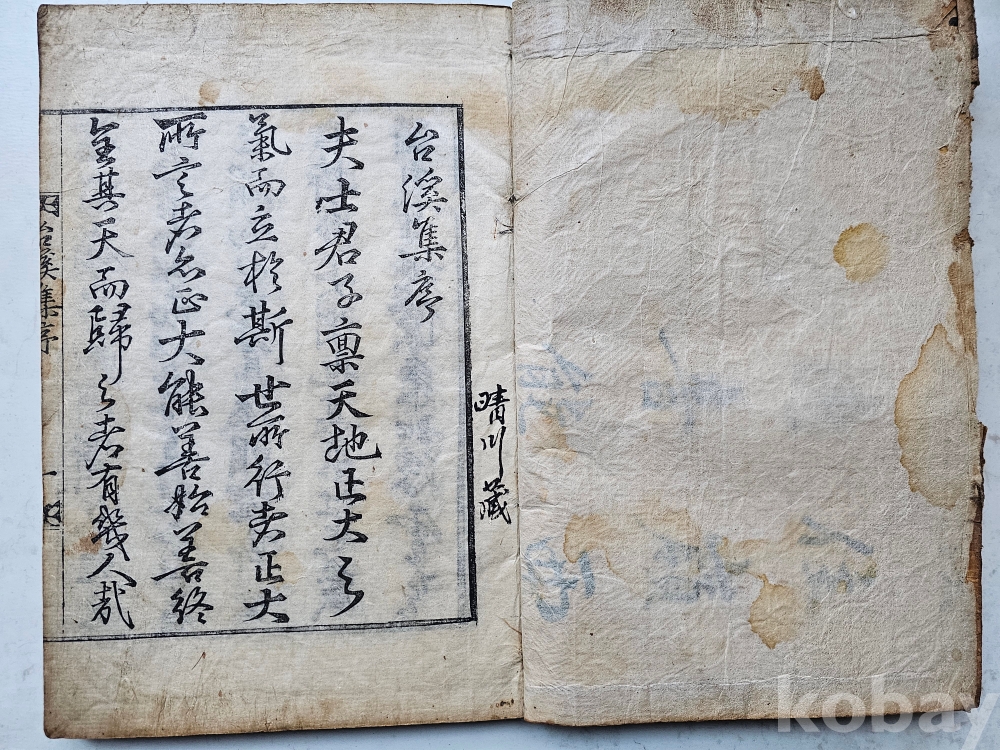 晴川藏
台溪集序
夫士君子禀天地正大之
氣而立於斯世所行者正大
所言者亦正大能善始善終
全其天而歸之者有幾人哉
台溪集序
一
kobay